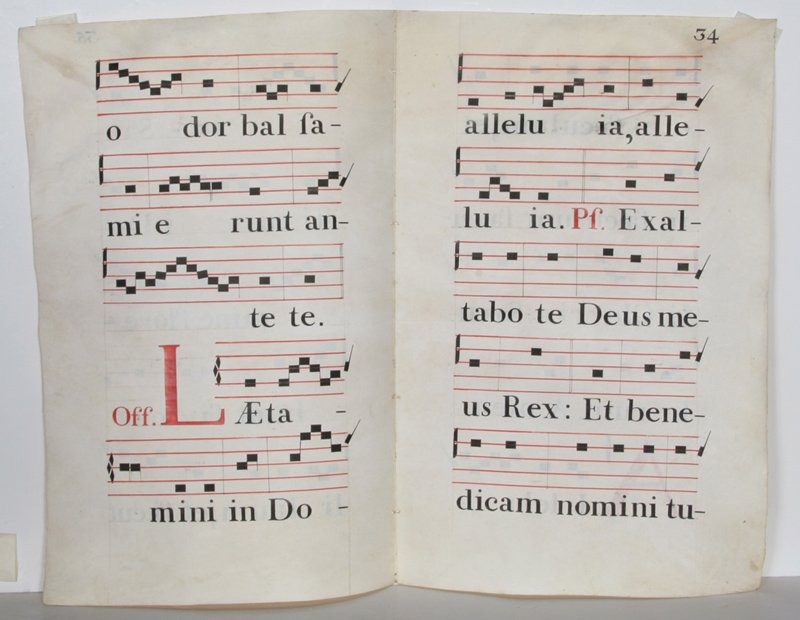 o dor bal ſa-
mi e runt an-
te te.
Off. LÆta -
mini in Do -
34
allelu ia, alle-
lu ia. Pſ. Exal-
tabo te Deus me-
us Rex: Et bene-
dicam nomini tu-